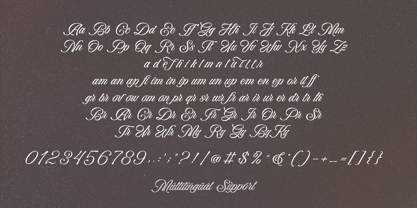 Aa Bb Cc Dd Ee Ff Gg Hh Ii Jj Kk Ll Mm
Nn Oo Pp Qq Rr Ss Tt Uu Vv Ww Xx Yy Zz
am an ap fi im in ip um un up em en ep or il ff
gr br ov ow om on pr qr sr wr fr ar ir ur er dr tr
Br Rr Cr Dr Er Fr Gr Ir Or Pr Sr
Tr Ur Wr Ny Ry Gy By Ky
0123456789
Multilingual Support